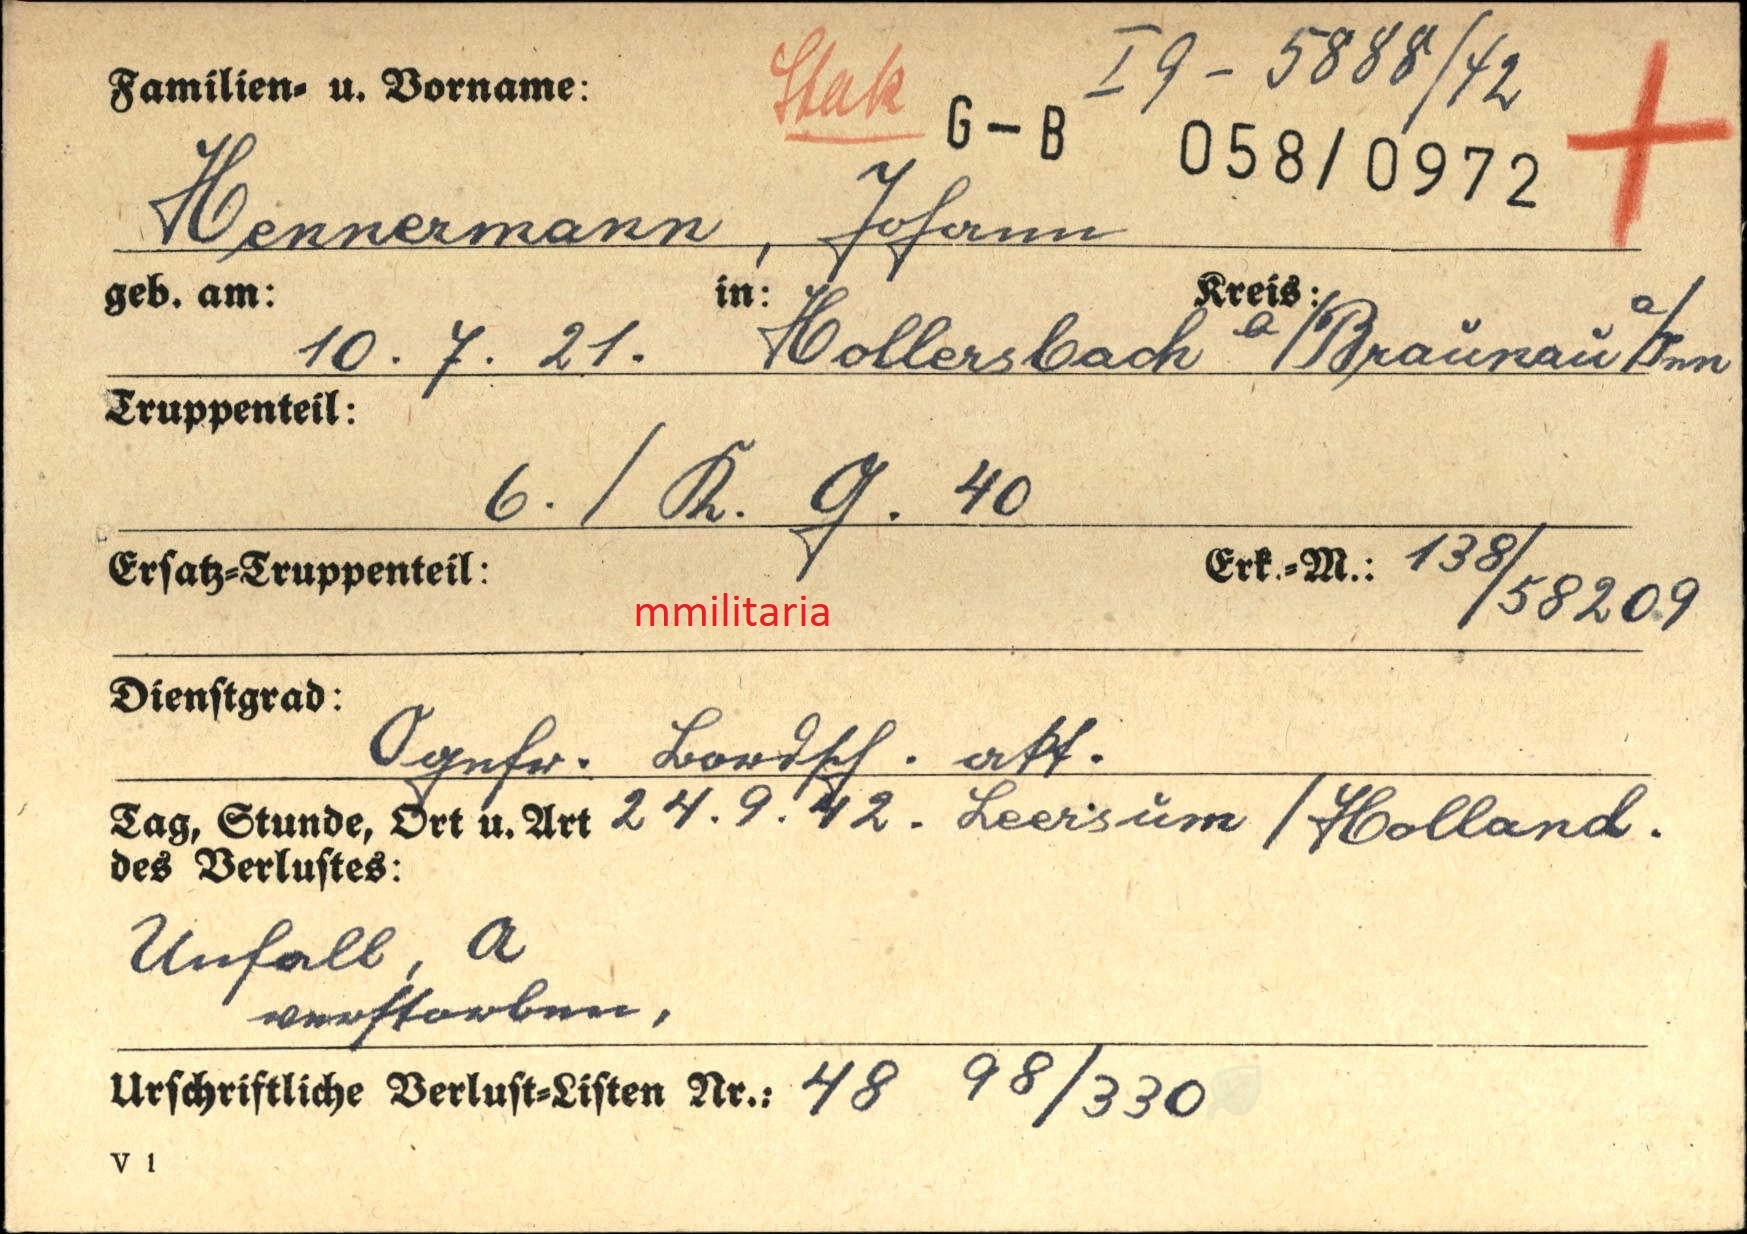 Stak I 9 - 5888/42
Familien- u. Vorname: G-B 058/0972
Hennermann, Johann
geb. am: in: Kreis:
10. 7. 21. Hollersbach b/Braunau a/Inn
Truppenteil:
6. / K. G. 40
Ersatz-Truppenteil: Erk.-M.: 138/58209
mmilitaria
Dienstgrad:
Ogefr. Bordsch. akt.
Tag, Stunde, Ort u. Art 24. 9. 42. Leersum / Holland.
des Verlustes:
Unfall, a
verstorben,
Urschriftliche Verlust-Listen Nr.: 48 98/330
V 1